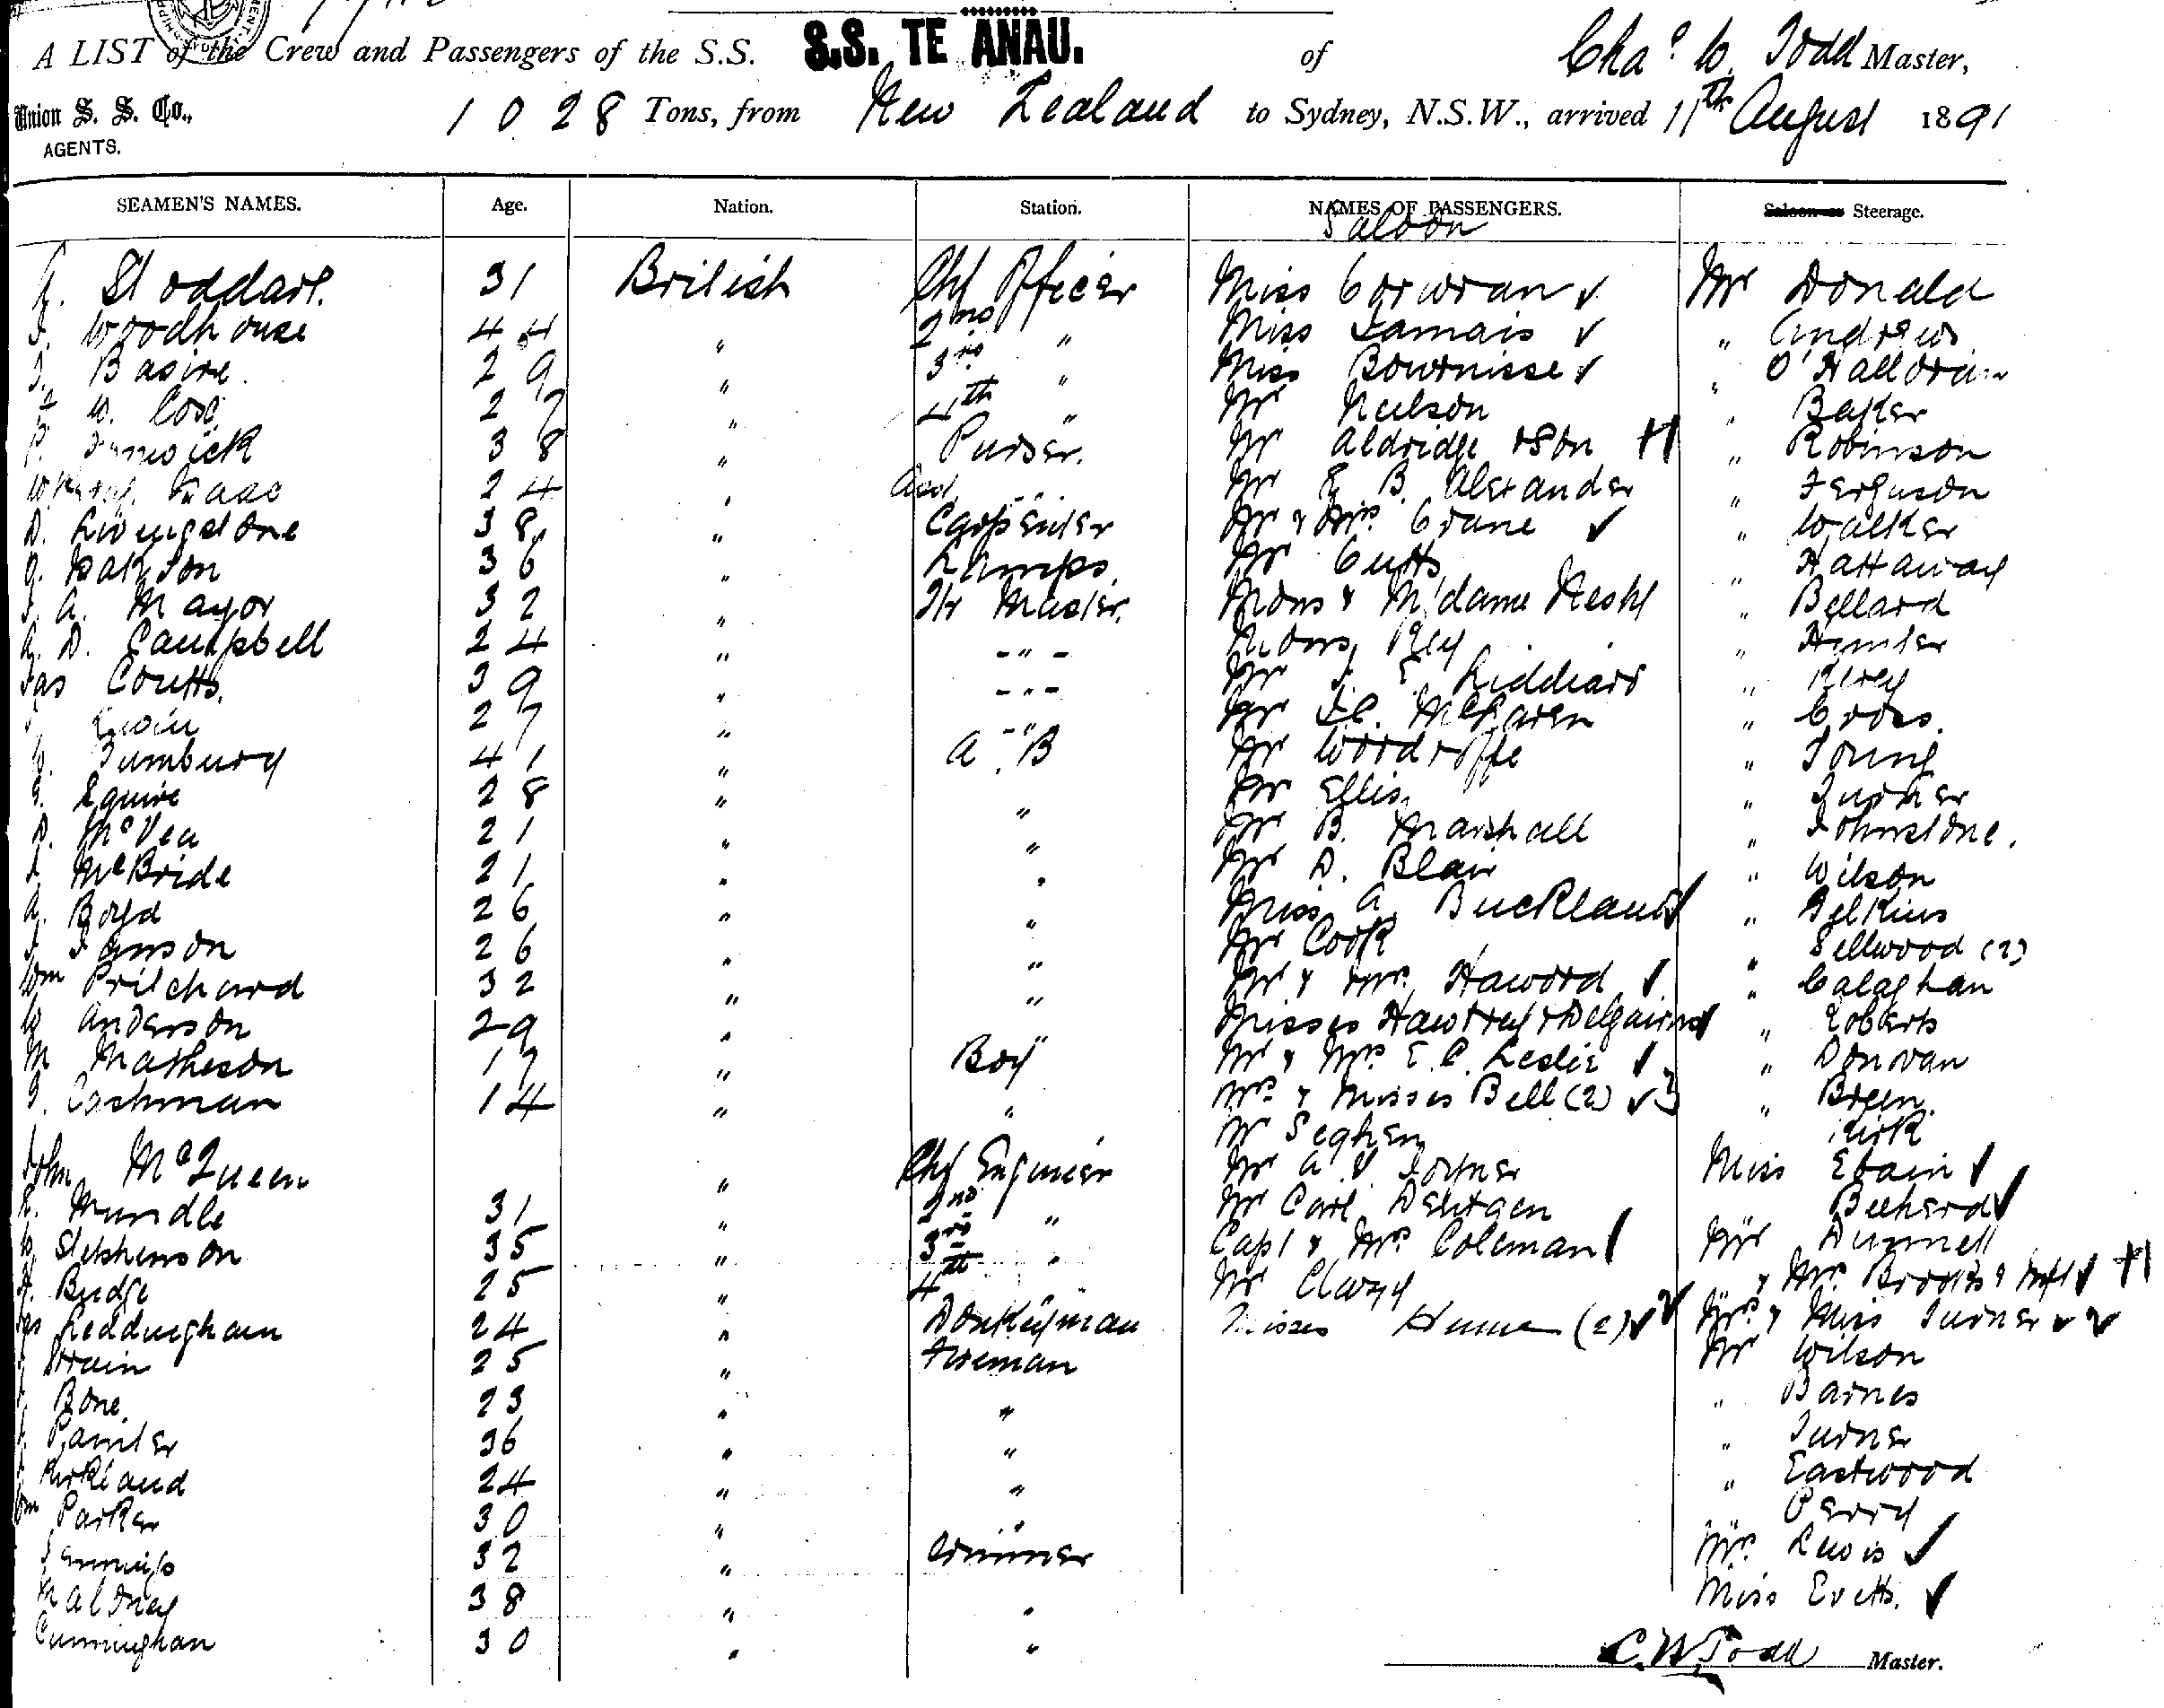 A LIST of the Crew and Passengers of the S.S. S.S. TE ANAU. of Chas W. Todd Master,
Union S. S. Co., AGENTS. 1028 Tons, from New Zealand to Sydney, N.S.W., arrived 11th August 1891
SEAMEN'S NAMES. Age. Nation. Station. NAMES OF PASSENGERS. Saloon or Steerage.
Saloon
Stoddart. 31 British Chf Officer Miss Corwran Mr Donald
Woodhouse 44 " 2nd " Miss Jamais " Andrews
Basire 29 " 3rd " Miss Bournisse " O'Halloran
W. Cox 27 " 4th " Mr Neilson " Baker
38 " Purser. Mr Aldridge & Son " Robinson
Isaac 24 " Mr E B. Alexander " Ferguson
D. Livingstone 38 " Carpenter Mr & Mrs Crane " Walker
36 " Lamps. Mr Cutts " Hattaway
A. Mayor 32 " Master. Mons & M'dame " Bellard
A. D. Campbell 24 " - " - Mons " Hunter
Jas Coutts. 39 " - " - Mr Liddiard "
27 " - " Mr McLaren " Cross.
41 " A.B Mr Woodroffe " Young
Squire 28 " " Mr Ellis " Turner
D. McVea 21 " " Mr B. Marshall " Johnstone.
McBride 21 " " Mr D. Blair " Wilson
A. Boyd 26 " " Miss A. Buckland "
26 " " Mr Cook Sellwood (2)
Wm Pritchard 32 " " Mr & Mrs Haword " Calaghan
W Anderson 29 " " Misses Hawtrey & " Roberts
M Matheson 17 " Boy Mr & Mrs E. C. Leslie " Donovan
Cashman 14 " " Mrs & Misses Bell (2) 3 " Breen.
Mr Kirk
John McQueen " Chf Engineer Mr A. Joyner Miss
R. Mundle 31 " 2nd " Mr Carl
W Stephenson 35 " 3rd " Capt & Mrs Coleman Mr Dunnell
Budge 25 " 4th Mr Clazy & Mrs Brooks & Inft
Jas Leddingham 24 " Donkeyman Misses Hume (2) 2 Mrs & Miss Turner 2
Strain 25 " Fireman Mr Wilson
Bone 23 " " " Barnes
Painter 36 " " " Turner
Kirkland 24 " " " Eastwood
Wm Parker 30 " " " Perry
Jennings 32 " Trimmer Mrs Lewis
38 " " Miss Evetts.
Cunningham 30 " "
C. W. Todd Master.